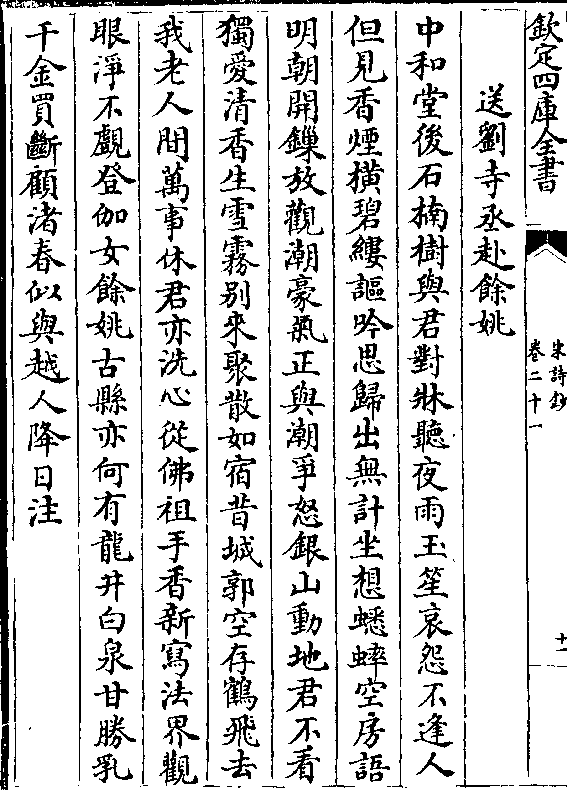 欽定四庫全書
宋詩鈔
卷二十一
十一
送劉寺丞赴餘姚
中和堂後石楠樹與君對牀聽夜雨玉笙哀怨不逢人
但見香煙橫碧縷謳吟思歸出無計坐想蟋蟀空房語
明朝開鏁放觀潮豪氣正與潮爭怒銀山動地君不看
獨愛清香生雪霧别來聚散如宿昔城郭空存鶴飛去
我老人間萬事休君亦洗心從佛祖手香新寫法界觀
眼淨不覷登伽女餘姚古縣亦何有龍井白泉甘勝乳
千金買斷顧渚春似與越人降日注